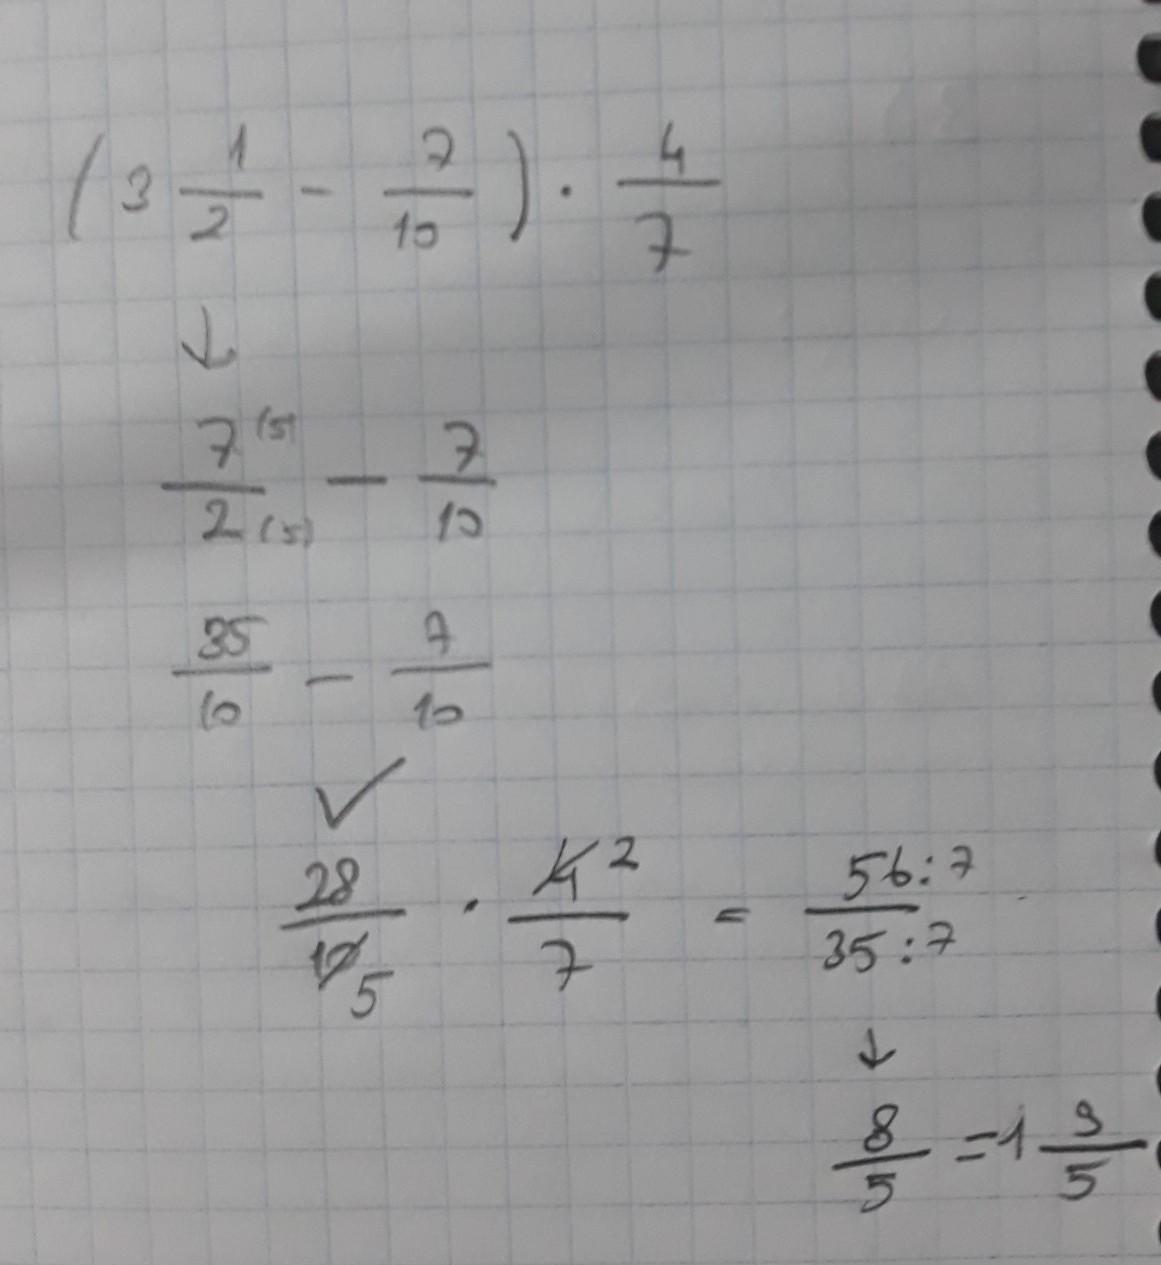 (3 1/2 - 7/10) · 4/7
↓
7(5)/2(5) - 7/10
35/10 - 7/10
✓
28/10 5 · 4 2/7 = 56:7/35:7
↓
8/5 = 1 3/5